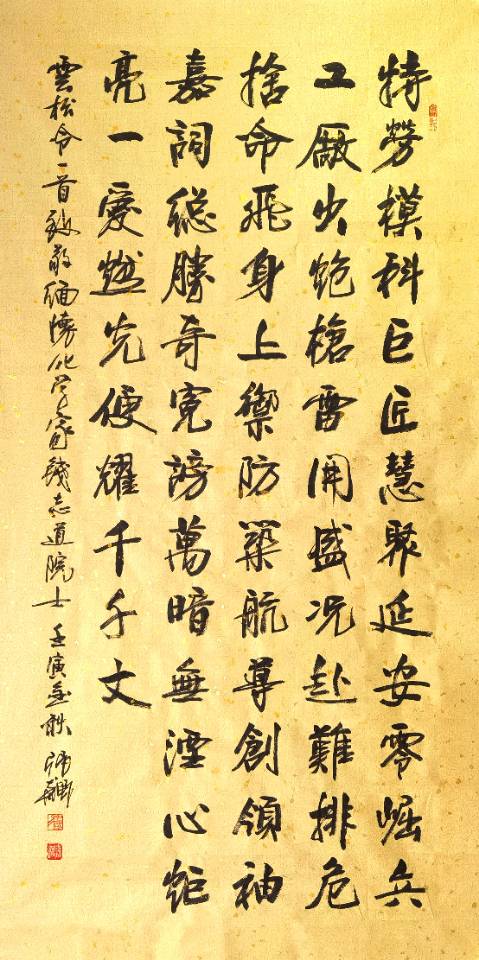 特勞模科巨匠慧聚延安零崛兵
工廠出炮槍雷開盛况赴難排危
捨命飛身上禦防築航導創領袖
嘉詞總勝奇寃謗萬暗無湮心炬
亮一愛燃光便耀千千丈
雲松令一首致敬緬懷化學家錢志道院士 壬寅金秋